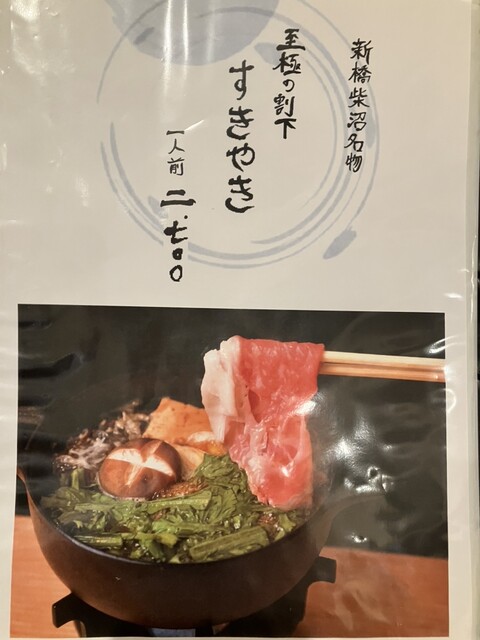 新橋柴沼名物
至極の割下
すきやき
一人前 二、七〇〇